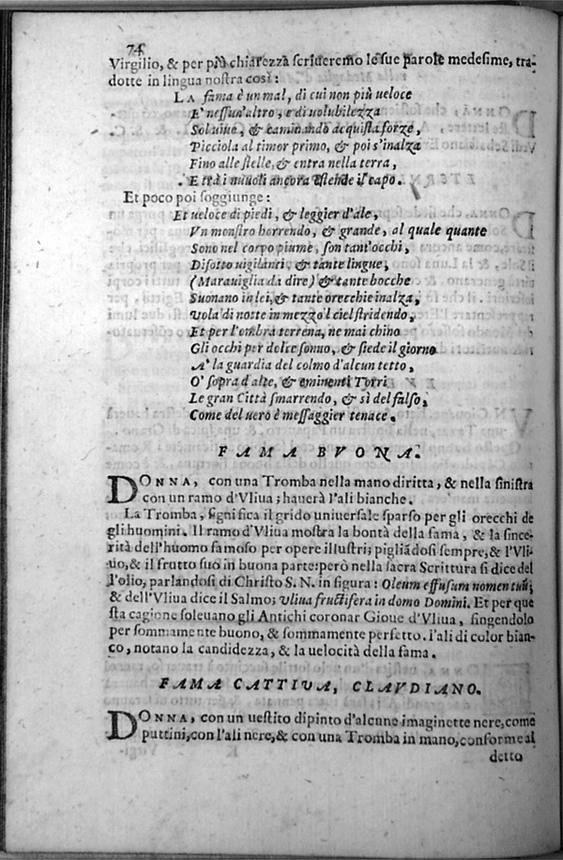 74
Virgilio, & per più chiarezza scriueremo le sue parole medesime, tra-
dotte in lingua nostra così:
LA fama è un mal, di cui non più ueloce
E' nessun'altro, e di uolubilezza
Sol uiue, & caminando acquista forze,
Picciola al timor primo, & poi s'inalza
Fino alle stelle, & entra nella terra,
E trà i nuuoli ancora estende il capo.
Et poco poi soggiunge:
Et ueloce di piedi, & leggier d'ale,
Vn monstro horrendo, & grande, al quale quante
Sono nel corpo piume, son tant'occhi,
Disotto uigilanti, & tante lingue,
(Marauiglia da dire) & tante bocche
Suonano in lei, & tante orecchie inalza,
Vola di notte in mezzo'l ciel stridendo,
Et per l'ombra terrena, ne mai chino
Gli occhi per dolce sonno, & siede il giorno
A' la guardia del colmo d'alcun tetto,
O' sopra d'alte, & eminenti Torri
Le gran Città smarrendo, & sì del falso,
Come del uero è messaggier tenace.
FAMA BVONA.
DONNA, con una Tromba nella mano diritta, & nella sinistra
con un ramo d'Vliua; hauerà l'ali bianche.
La Tromba, significa il grido uniuersale sparso per gli orecchi de
gli huomini. Il ramo d'Vliua mostra la bontà della fama, & la since-
rità dell'huomo famoso per opere illustri; pigliãdosi sempre, & l'Vli-
uo, & il frutto suo in buona parte: però nella sacra Scrittura si dice del
l'olio, parlandosi di Christo S. N. in figura: Oleum effusum nomen tuũ;
& dell'Vliua dice il Salmo; Vliua fructifera in domo Domini. Et per que
sta cagione soleuano gli Antichi coronar Gioue d'Vliua, fingendolo
per sommamente buono, & sommamente perfetto. l'ali di color bian-
co, notano la candidezza, & la uelocità della fama.
FAMA CATTIVA, CLAVDIANO.
DONNA, con un uestito dipinto d'alcune imaginette nere, come
puttini, con l'ali nere, & con una Tromba in mano, conforme al
detto